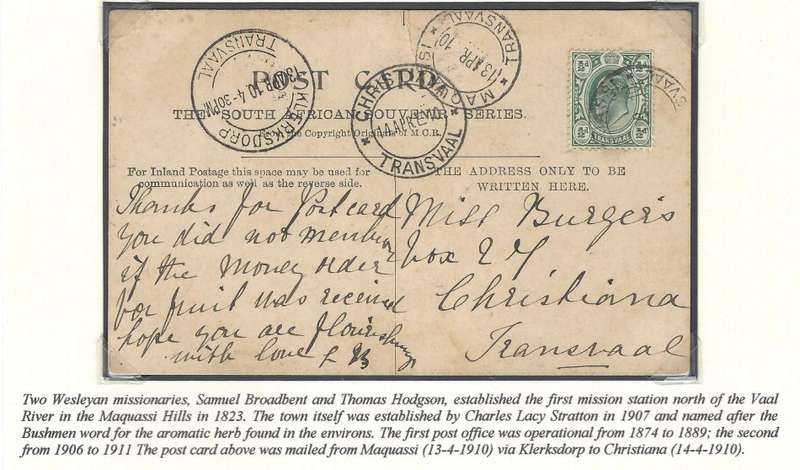 KLERKSDORP
13 APR. 10. 4-30PM
TRANSVAAL
13 APR. 10
TRANSVAAL
CHRISTIANA
TRANSVAAL
POST CARD
THE SOUTH AFRICAN SOUVENIR SERIES.
the Copyright Originals of M.C.R.
½d ½d
TRANSVAAL
For Inland Postage this space may be used for
communication as well as the reverse side.
THE ADDRESS ONLY TO BE
WRITTEN HERE.
Thanks for Postcard
you did not mention
if the Money order
for fruit was received
hope you are flourishing
with love
Miss Burgers
box 27
Christiana
Transvaal
Two Wesleyan missionaries, Samuel Broadbent and Thomas Hodgson, established the first mission station north of the Vaal
River in the Maquassi Hills in 1823. The town itself was established by Charles Lacy Stratton in 1907 and named after the
Bushmen word for the aromatic herb found in the environs. The first post office was operational from 1874 to 1889; the second
from 1906 to 1911 The post card above was mailed from Maquassi (13-4-1910) via Klerksdorp to Christiana (14-4-1910).